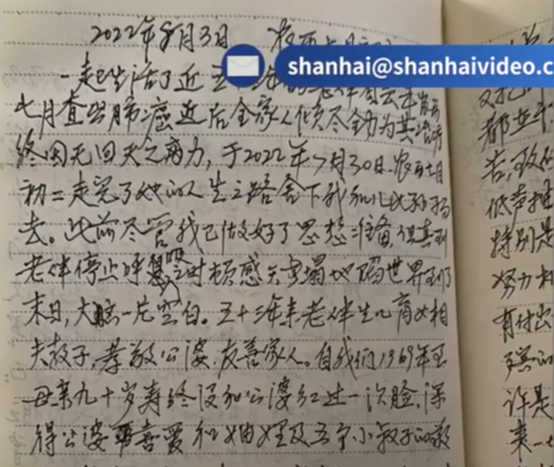 2022年8月3日 农历七月初
shanhai@shanhaivideo.c
一起生活了近五十三年的老伴自去年
七月查出肺癌近后全家人倾尽全力为其
终因无回天之力，于2022年7月30日.农历七月
初二走完了她的人生之路舍下我和儿女
去。此前尽管我已做好了思想准备，但真到
老伴停止呼吸时顿感天雪塌地陷世界到了
末日，大脑一片空白。五十三年来老伴生儿育女相
夫教子，孝敬公婆，友善家人。自我们1969年至
母亲九十岁寿终没和公婆红过一次脸，深
得公婆喜爱和妯娌及五个小叔子的敬
都
告
低声
特别是
努力
有付出
许是
来